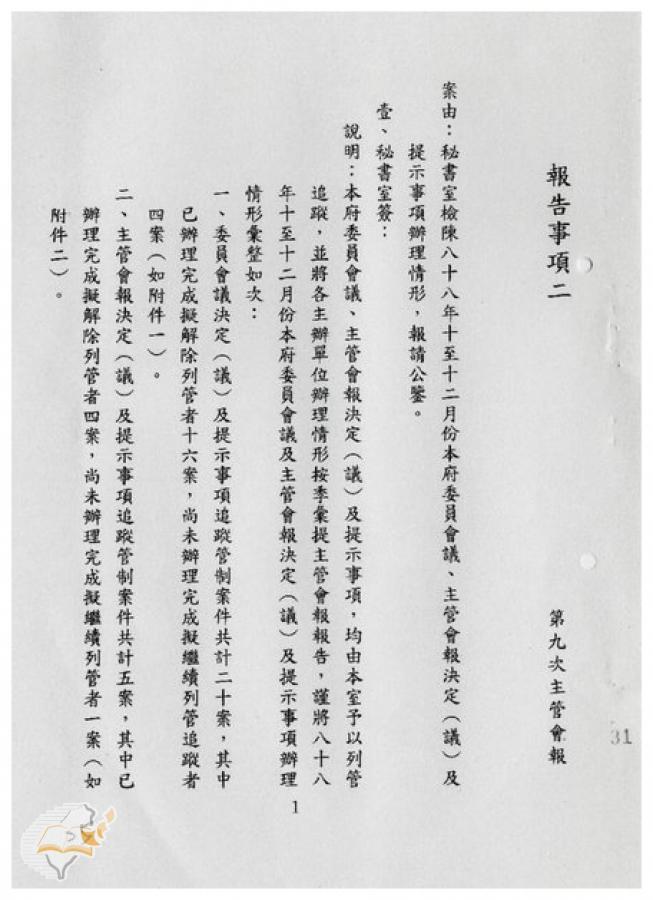 報告事項二
第九次主管會報
案由：秘書室檢陳八十八年十至十二月份本府委員會議、主管會報決定（議）及
提示事項辦理情形，報請公鑒。
壹、秘書室簽：
說明：本府委員會議、主管會報決定（議）及提示事項，均由本室予以列管
追蹤，並將各主辦單位辦理情形按季彙提主管會報報告，謹將八十八
年十至十二月份本府委員會議及主管會報決定（議）及提示事項辦理
情形彙整如次：
一、委員會議決定（議）及提示事項追蹤管制案件共計二十案，其中
已辦理完成擬解除列管者十六案，尚未辦理完成擬繼續列管追蹤者
四案（如附件一）。
二、主管會報決定（議）及提示事項追蹤管制案件共計五案，其中已
辦理完成擬解除列管者四案，尚未辦理完成擬繼續列管者一案（如
附件二）。
1
31